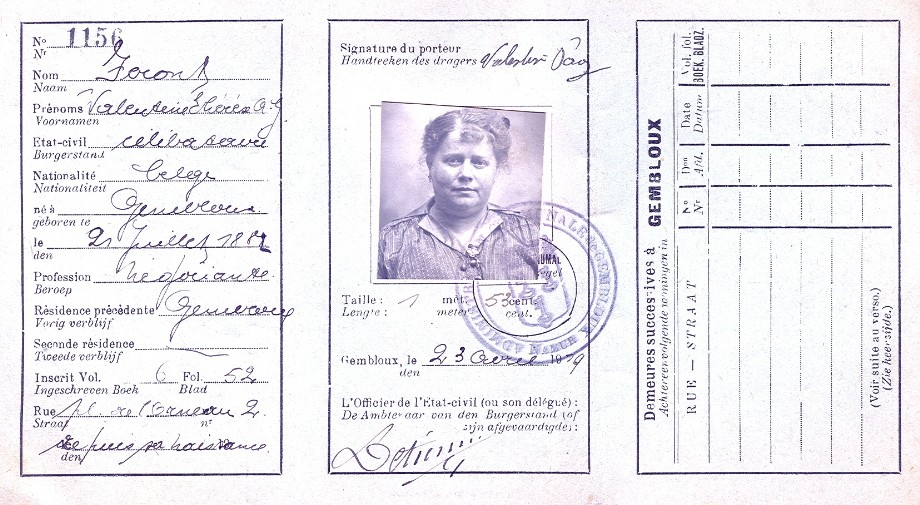 No 1156
Nr
Nom
Naam
Prénoms Valentine
Voornamen
Etat-civil célibataire
Burgerstand
Nationalité belge
Nationaliteit
né à Gembloux
geboren te
le 21 Juillet
den
Profession Négociante
Beroep
Résidence précédente Gembloux
Vorig verblijf
Seconde résidence
Tweede verblijf
Inscrit Vol. 6 Fol. 52
Ingeschreven Boek Blad
Rue pl. de l'Orneau 2
Straat nr
depuis sa naissance
den
Signature du porteur
Handteeken des dragers
Taille : 1 mèt. 53 cent.
Lengte : meter cent.
Gembloux, le 23 Avril 19
den
L'Officier de l'Etat-civil (ou son délégué) :
De Ambtenaar van den Burgerstand (of
zijn afgevaardigde) :
NAMUR
Demeures successives à GEMBLOUX
Achtereenvolgende woningen in
RUE — STRAAT
No
Nr
Don
Afd.
Date
Datum
Vol. fol.
BOEK. BLADZ.
(Voir suite au verso.)
(Zie keerzijde.)